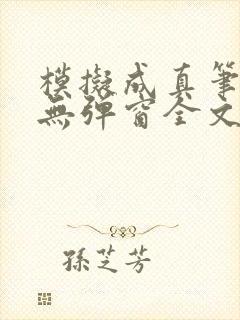 模擬成真筆
無彈窗全文
孫芝芳